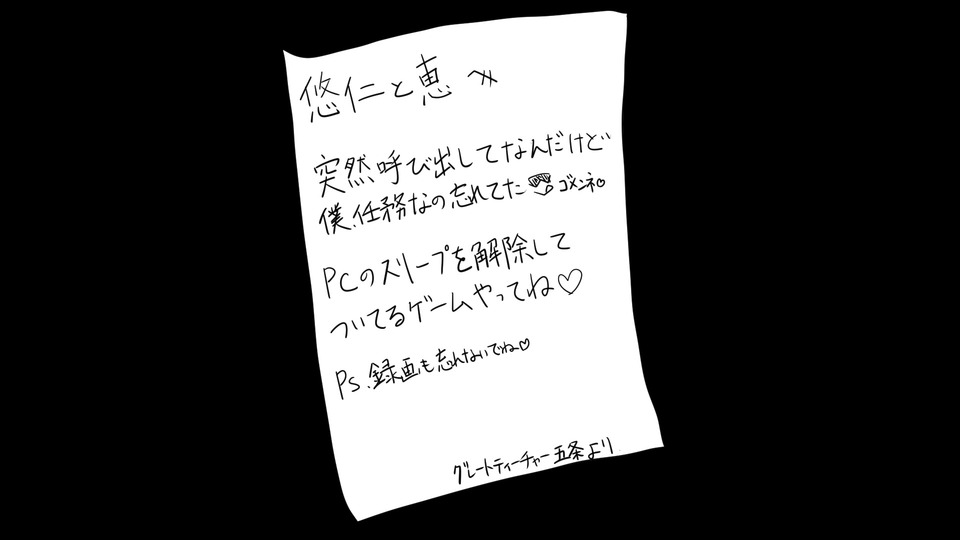 悠仁と恵へ
突然呼び出してなんだけど
僕、任務なの忘れてた ゴメンネ♡
PCのスリープを解除して
ついてるゲームやってね♡
Ps.録画も忘れないでね♡
グレートティーチャー五条より